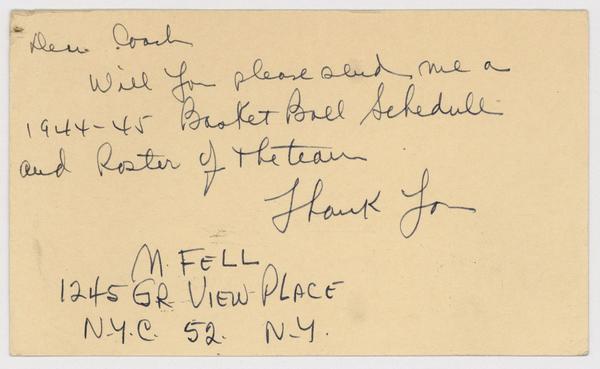 Dear Coach
Will You please send me a
1944-45 Basket Ball Schedule
and Roster of the team
Thank You
M. FELL
1245 GR VIEW PLACE
N.Y.C. 52. N.Y.